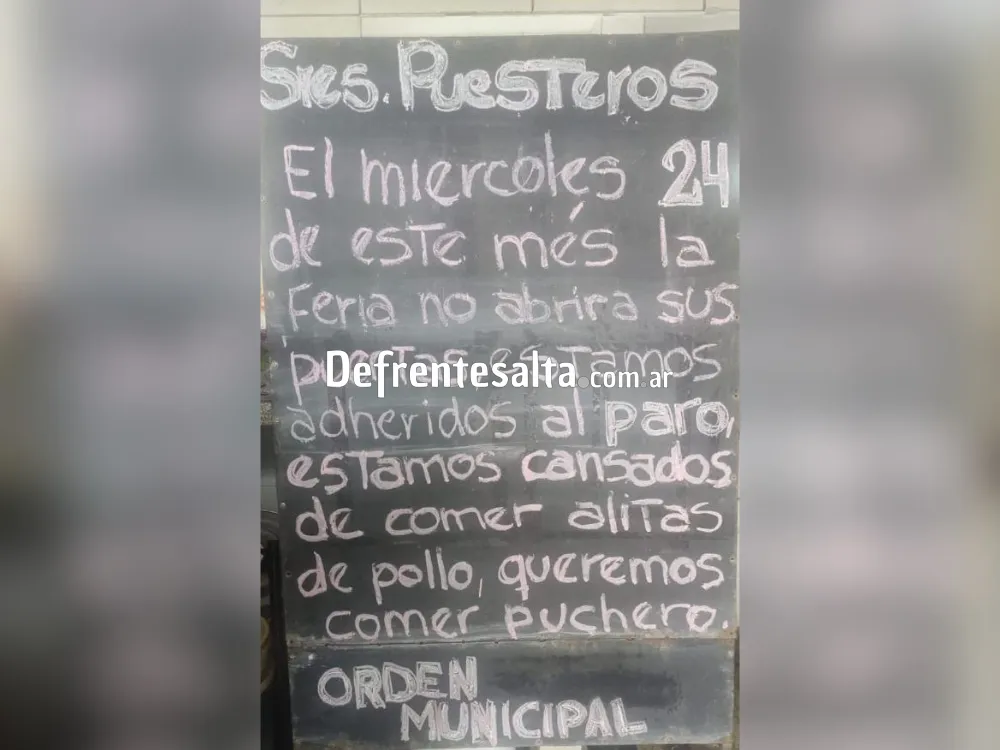 Sres. Puesteros
El miercoles 24
de este més la
Feria no abrira sus
puertas, estamos
Defrentesalta.com.ar
adheridos al paro,
estamos cansados
de comer alitas
de pollo, queremos
comer puchero.
ORDEN
MUNICIPAL